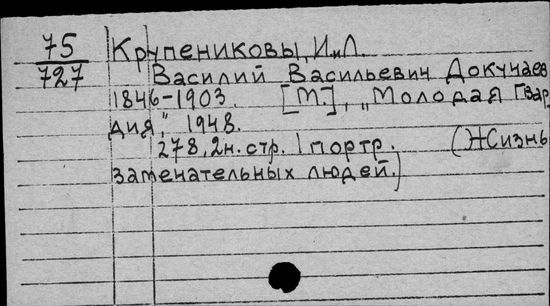 75
727
Крупениковы, И и Л.
Василий Васильевич Докучаев
1846-1903. [М.], „Молодая Гвар
дия," 1948.
278, 2н. стр. 1 портр. (Жизнь
замечательных людей.)